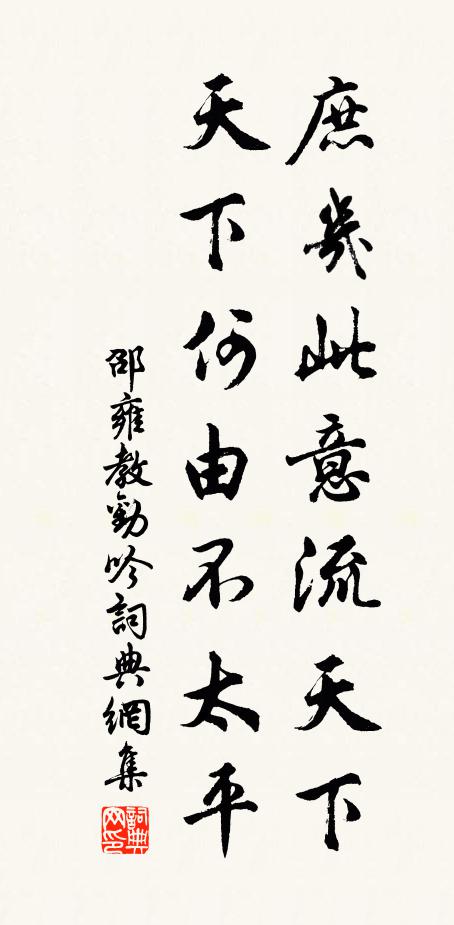 庶幾此意流天下
天下何由不太平
邵雍教勸吟詞典網集
詞典网印